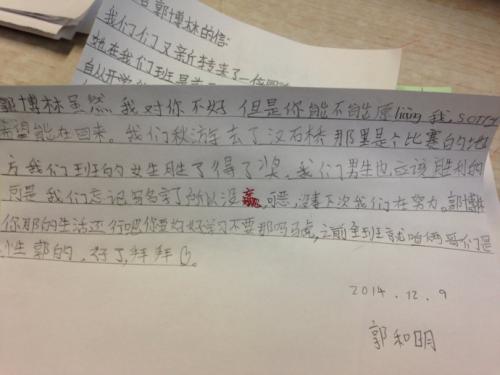 郭博林的信:
我们们又新转来了一位
她在我们班是
自从开学
郭博林虽然我对你不好但是你能不能原liàng我,sorry
希望能在回来。我们秋游去了汉石桥那里是个比赛的地
方我们班的女生胜了得了奖,我们男生也应该胜利的
可是我们忘记写名字了所以没赢,可恶,没事下次我们在努力。郭博林
你那的生活还行吧你要好好学习不要那吗马虎,之前全班就咱俩哥们是
姓郭的,好了,拜拜
2014.12.9
郭和明